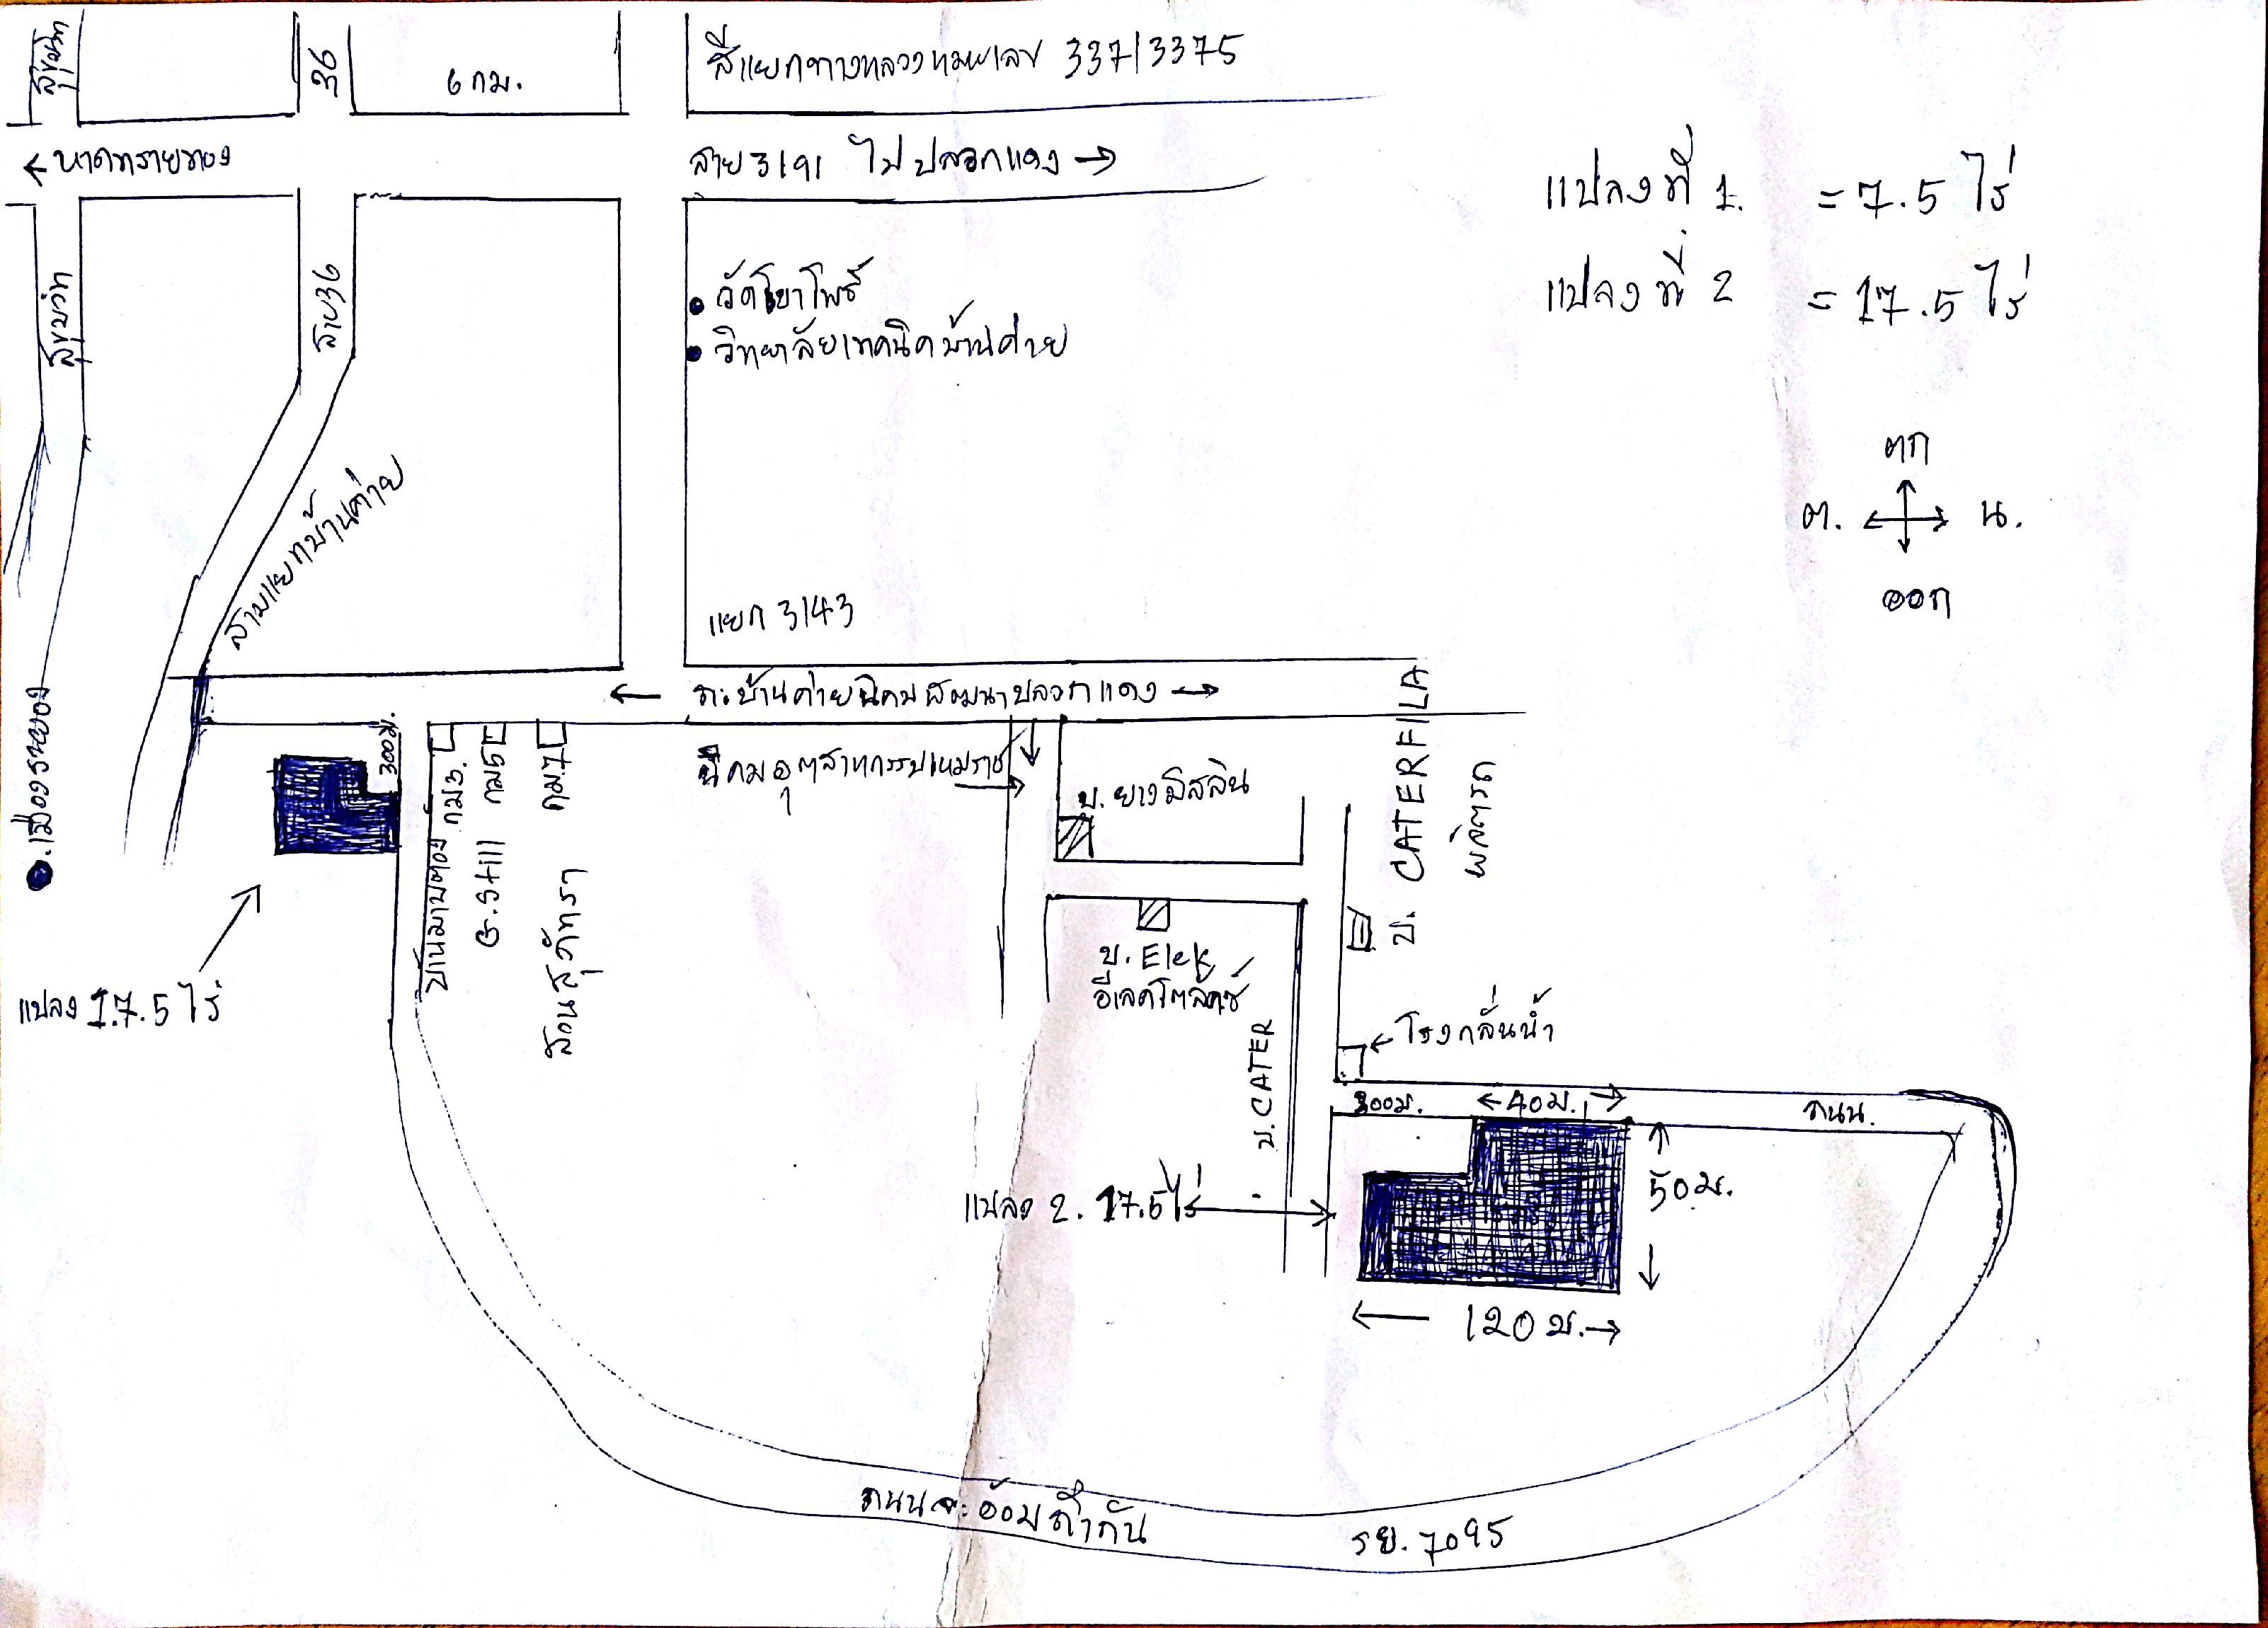 สุขุมวิท
36
6 กม.
สี่แยกทางหลวงหมายเลข 337/3375
← หาดทรายทอง
สาย 3191 ไปปลวกแดง →
แปลงที่ 1. = 7.5 ไร่
แปลงที่ 2 = 17.5 ไร่
สุขุมวิท
สาย36
วิทยาลัยเทคนิคบ้านค่าย
ตก
ต. น.
ออก
สามแยกบ้านค่าย
แยก 3143
← ถ.บ้านค่ายนิคมพัฒนาปลวกแดง →
เมืองระยอง
300ม.
บ้านมาบตอง กม3.
G.Still กม5
สวนสุภัทรา กม.7
นิคมอุตสาหกรรมเหมราช
บ. ยางมิสลิน
บ. CATERFILA
ผลิตรถ
บ. Elek
อีเลคโตลักซ์
แปลง 17.5 ไร่
บ. CATER
← โรงกลั่นน้ำ
300ม.
← 40ม. →
ถนน.
50ม.
แปลง 2. 17.5ไร่
← 120 ม. →
ถนนจะอ้อมถึงกัน
รย. 7095